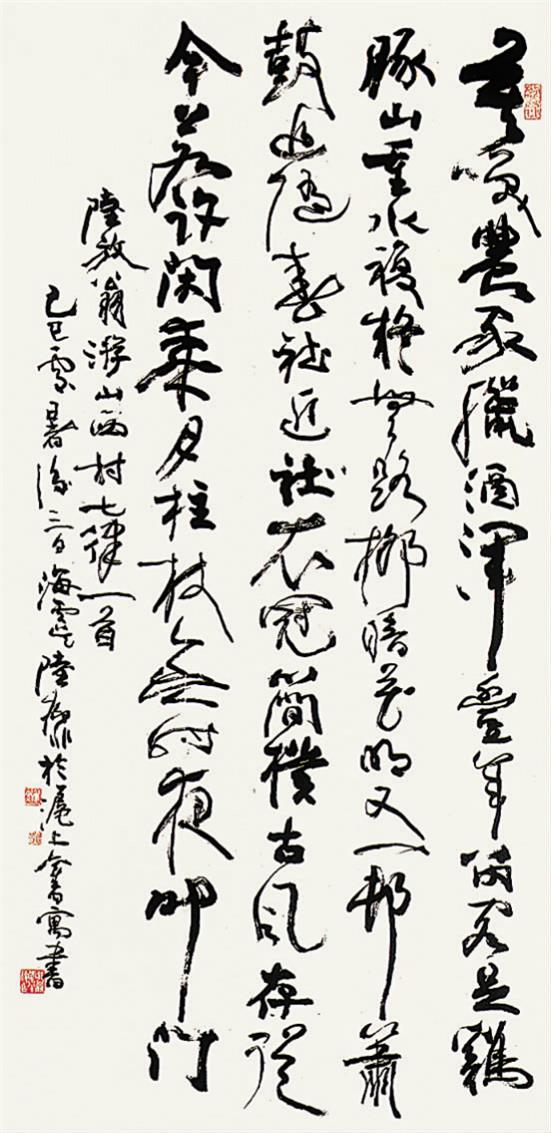 莫笑農家臘酒渾豐年留客足雞
豚山重水複疑無路柳暗花明又一邨簫
鼓追隨春社近社衣冠簡樸古風存從
今若許閑乘月柱杖無時夜叩門
陸放翁游山西村七律一首
己巳處暑後三日海寧陸於滬上寓書